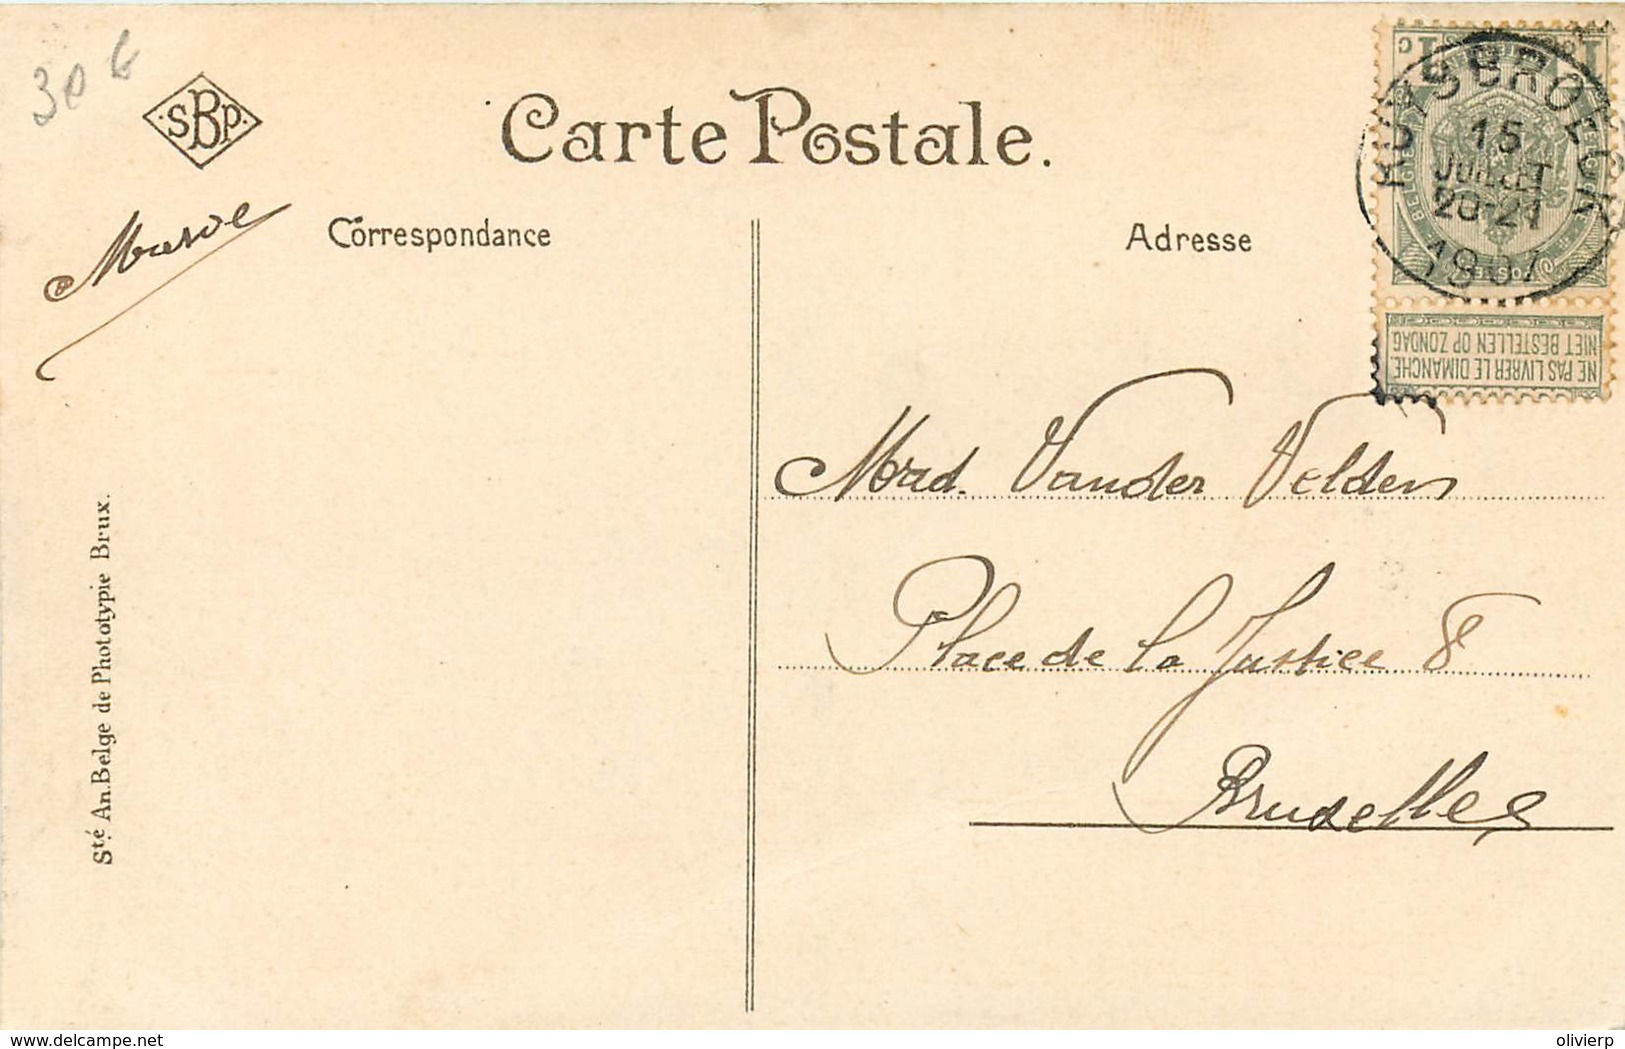 30 €
SBP
Carte Postale.
Correspondance
Adresse
RUYSBROECK
15
JUILLET
20-21
1907
NE PAS LIVRER LE DIMANCHE
NIET BESTELLEN OP ZONDAG
Mad. Vander Velden
Place de la Justice 8
Bruxelles
Sté An. Belge de Phototypie Brux.
www.delcampe.net
olivierp